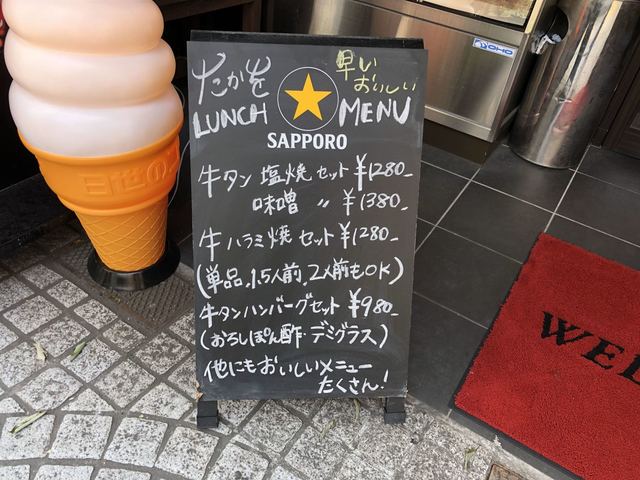 たかを 早い
おいしい
LUNCH MENU
SAPPORO
牛タン 塩焼セット ¥1280-
味噌 〃 ¥1380-
牛ハラミ焼セット ¥1280-
(単品、1.5人前、2人前もOK)
牛タンハンバーグセット ¥980-
(おろしぽん酢・デミグラス)
他にもおいしいメニュー
たくさん!
HOHO
日世の
WEL